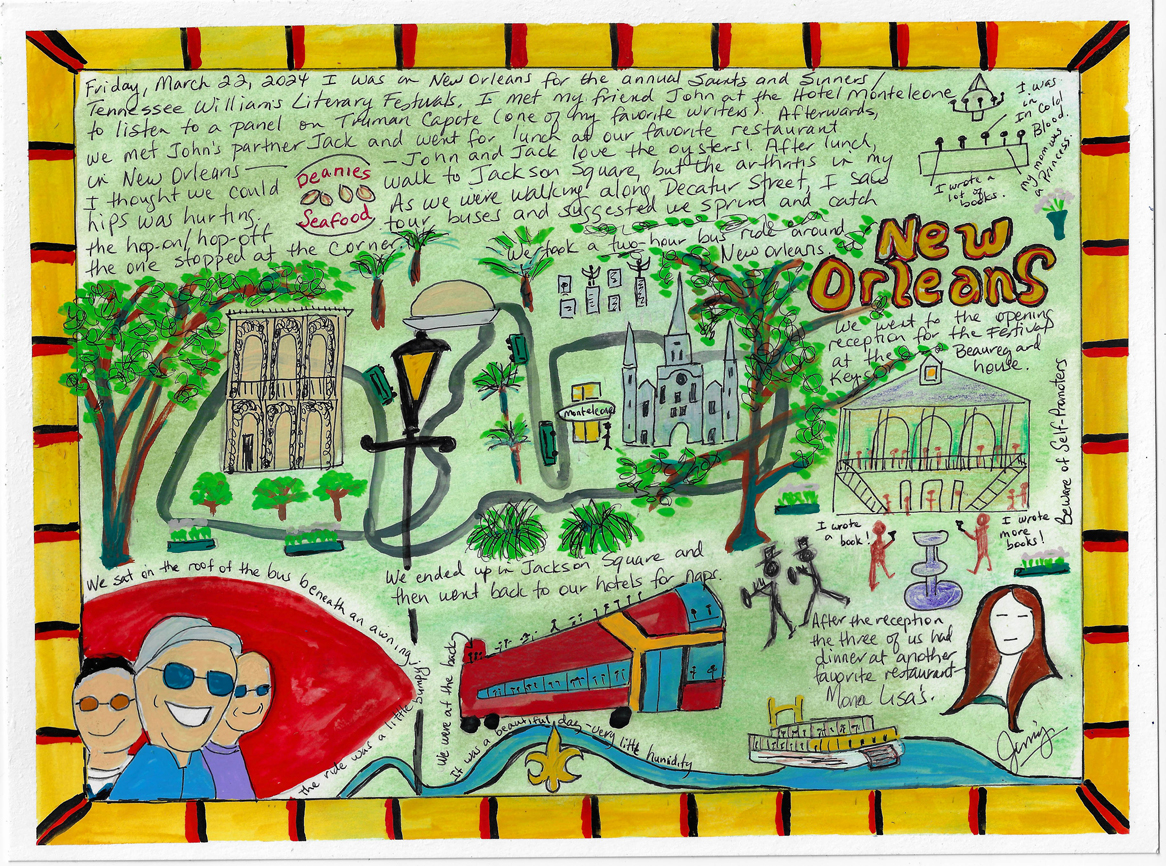 Friday, March 22, 2024 I was in New Orleans for the annual Saints and Sinners/
Tennessee William's Literary Festivals. I met my friend John at the Hotel Monteleone
to listen to a panel on Truman Capote (one of my favorite writers). Afterwards,
we met John's partner Jack and went for lunch at our favorite restaurant
in New Orleans—
Deanies
Seafood
—John and Jack love the oysters! After lunch,
I thought we could walk to Jackson Square, but the arthritis in my
hips was hurting. As we were walking along Decatur Street, I saw
the hop-on/hop-off tour buses and suggested we sprint and catch
the one stopped at the corner.
We took a two-hour bus ride around
New Orleans.
I was
in
In Cold
Blood.
my mom was
a Princess.
I wrote a
lot of
books.
New
Orleans
We went to the opening
reception for the Festival
at the Beauregard
Keys house.
Monteleone
Beware of Self-Promoters
I wrote
a book!
I wrote
more
books!
We ended up in Jackson Square and
then went back to our hotels for naps.
We sat on the roof of the bus beneath an awning.
The ride was a little bumpy
We were at the back
It was a beautiful day - very little humidity
After the reception
the three of us had
dinner at another
favorite restaurant—
Mona Lisa's.